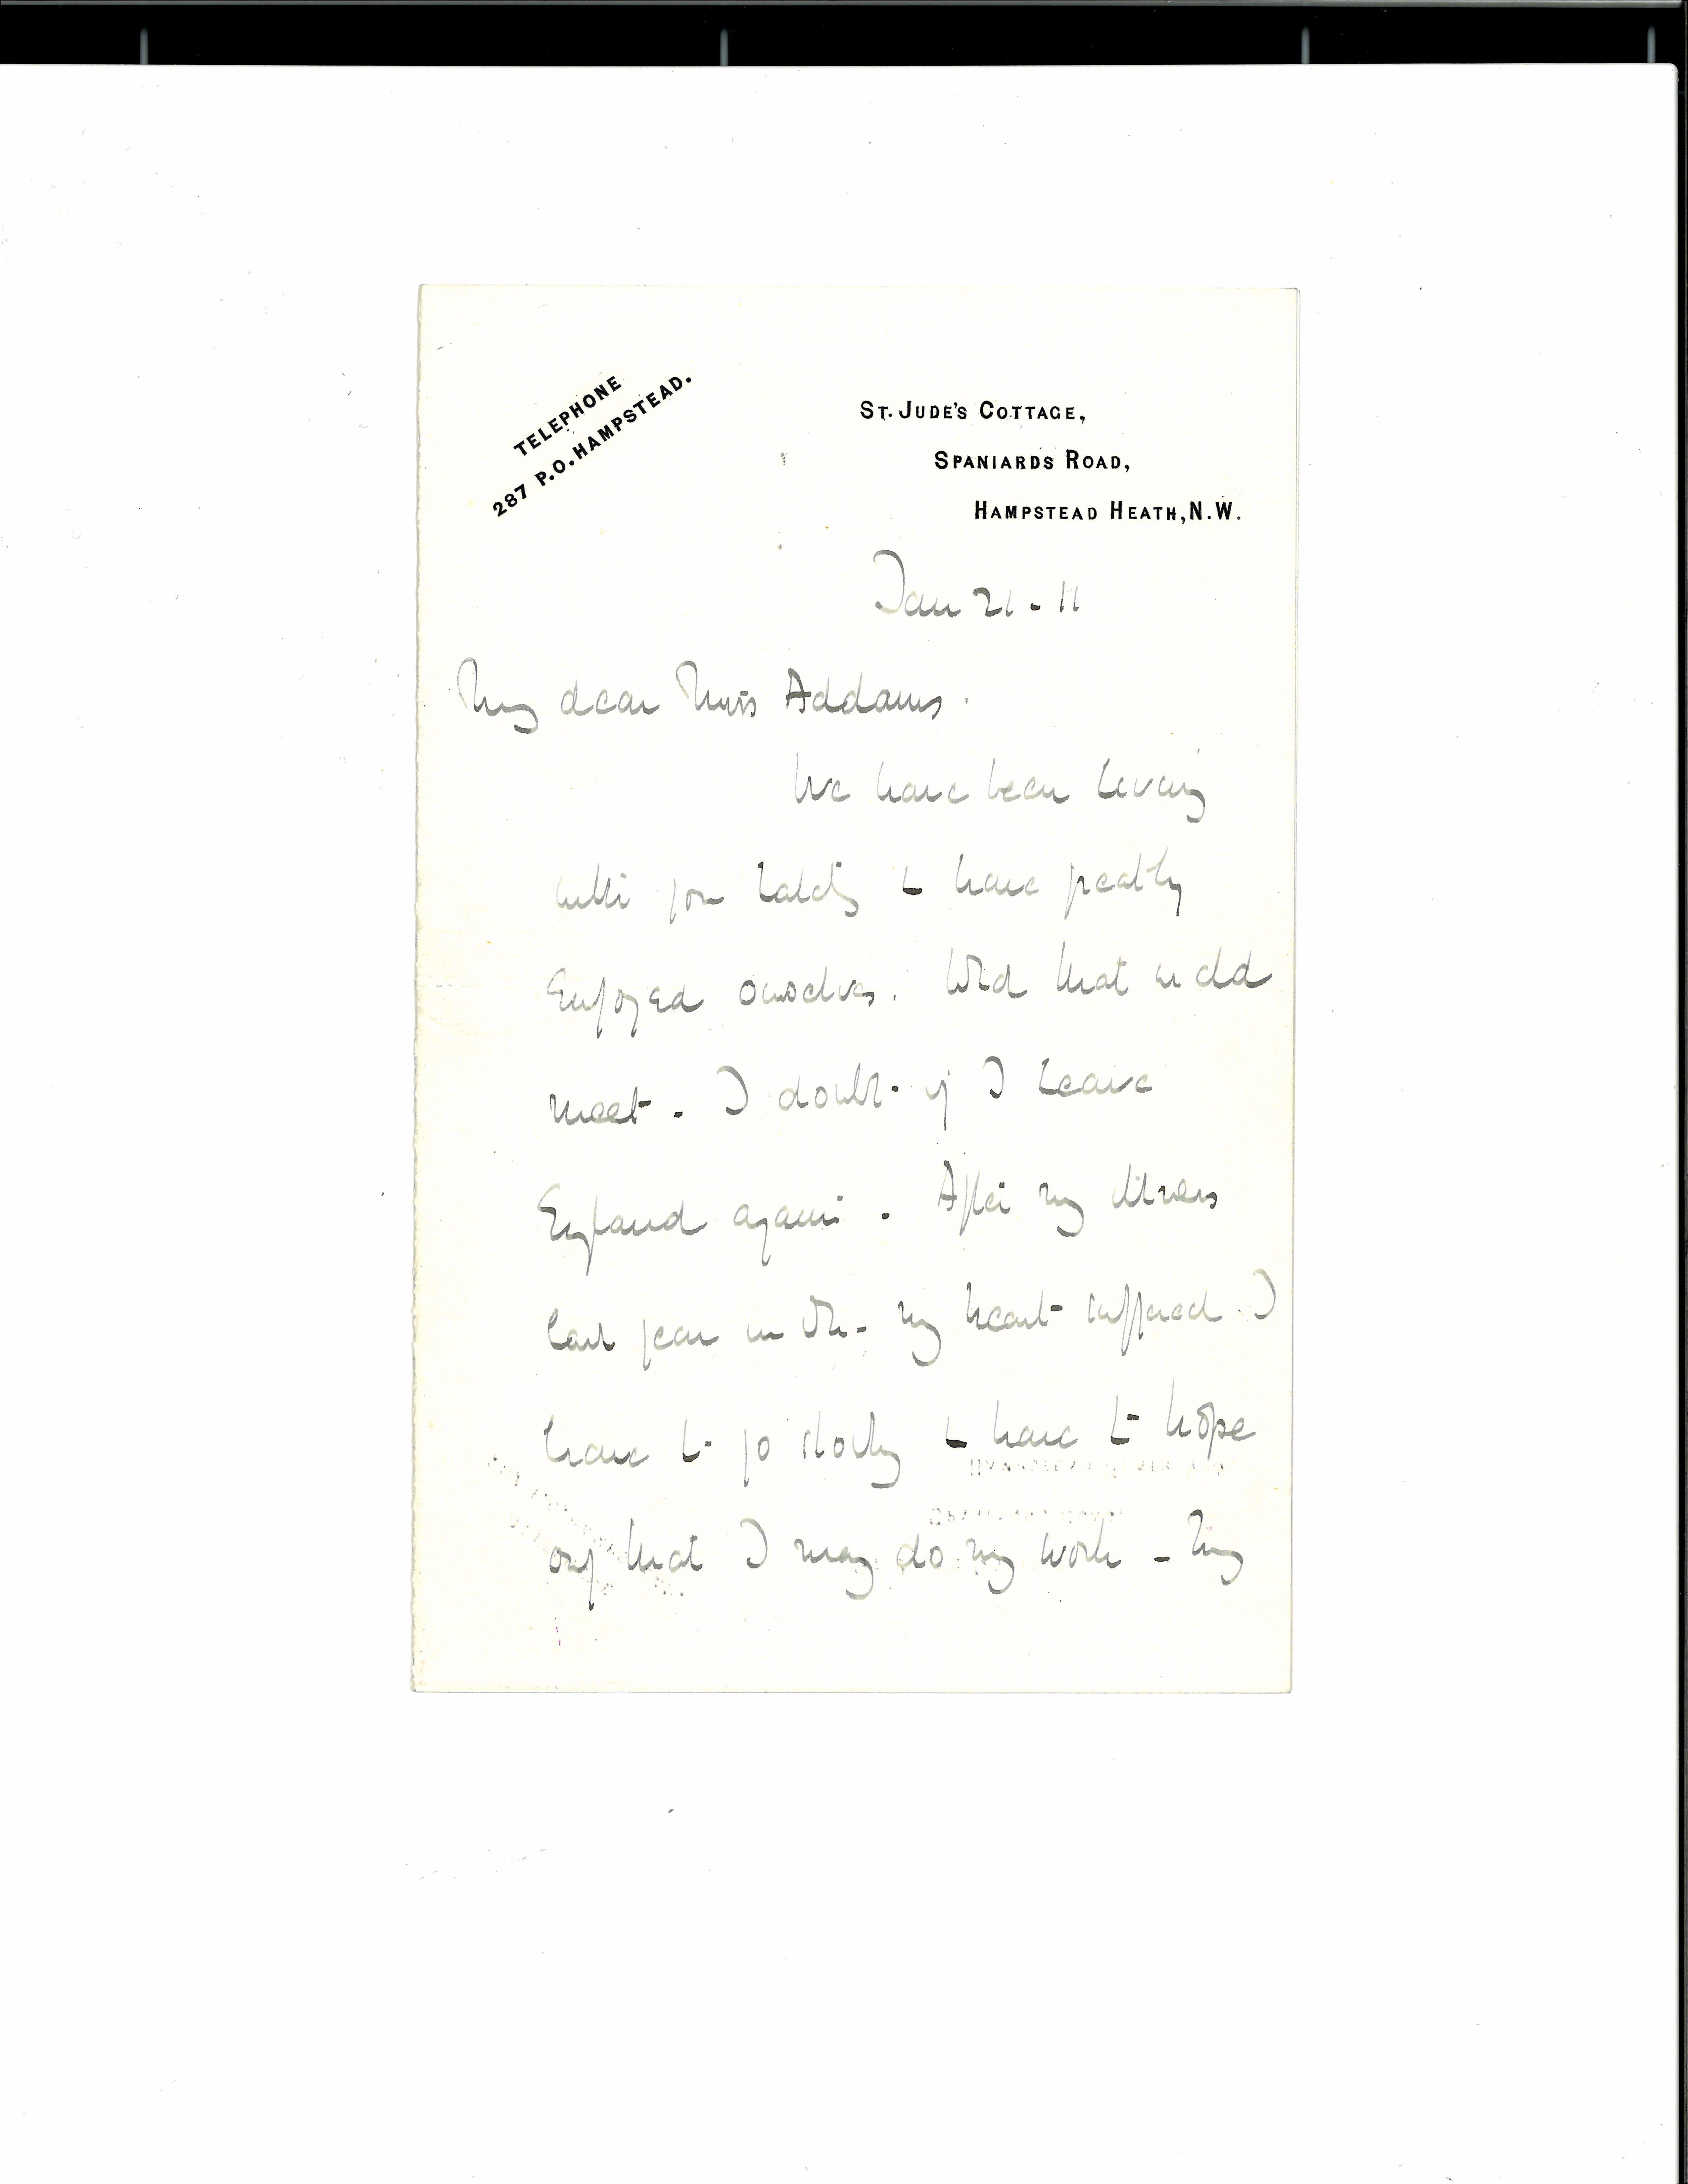 TELEPHONE
287 P.O. HAMPSTEAD.
ST. JUDE'S COTTAGE,
SPANIARDS ROAD,
HAMPSTEAD HEATH, N.W.
Jan 21 - 11
My dear Miss Addams.
We have been living
with you lately & have greatly
enjoyed ourselves. Wld that we cld
meet - I doubt if I leave
England again. After my illness
last year in my heart suffered I
have to go slowly & have to hope
only that I may do my work - My